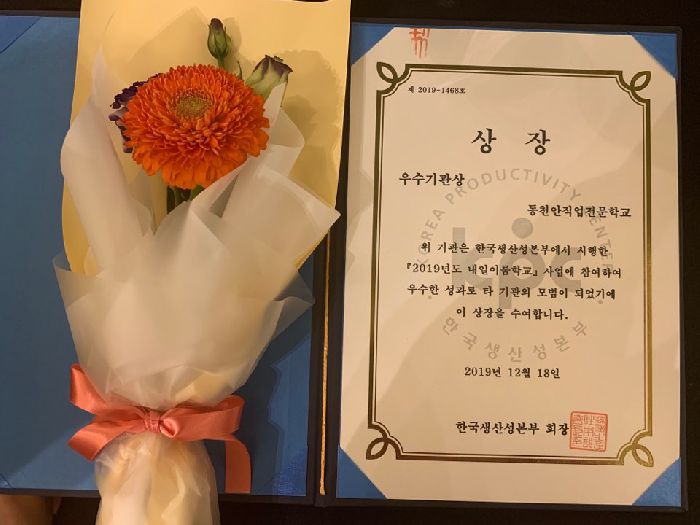 제 2019-1468호
상 장
우수기관상
동천안직업전문학교
위 기관은 한국생산성본부에서 시행한
『2019년도 내일이룸학교』 사업에 참여하여
우수한 성과로 타 기관의 모범이 되었기에
이 상장을 수여합니다.
2019년 12월 18일
한국생산성본부 회장
KOREA PRODUCTIVITY CENTER
kpc
한국생산성본부